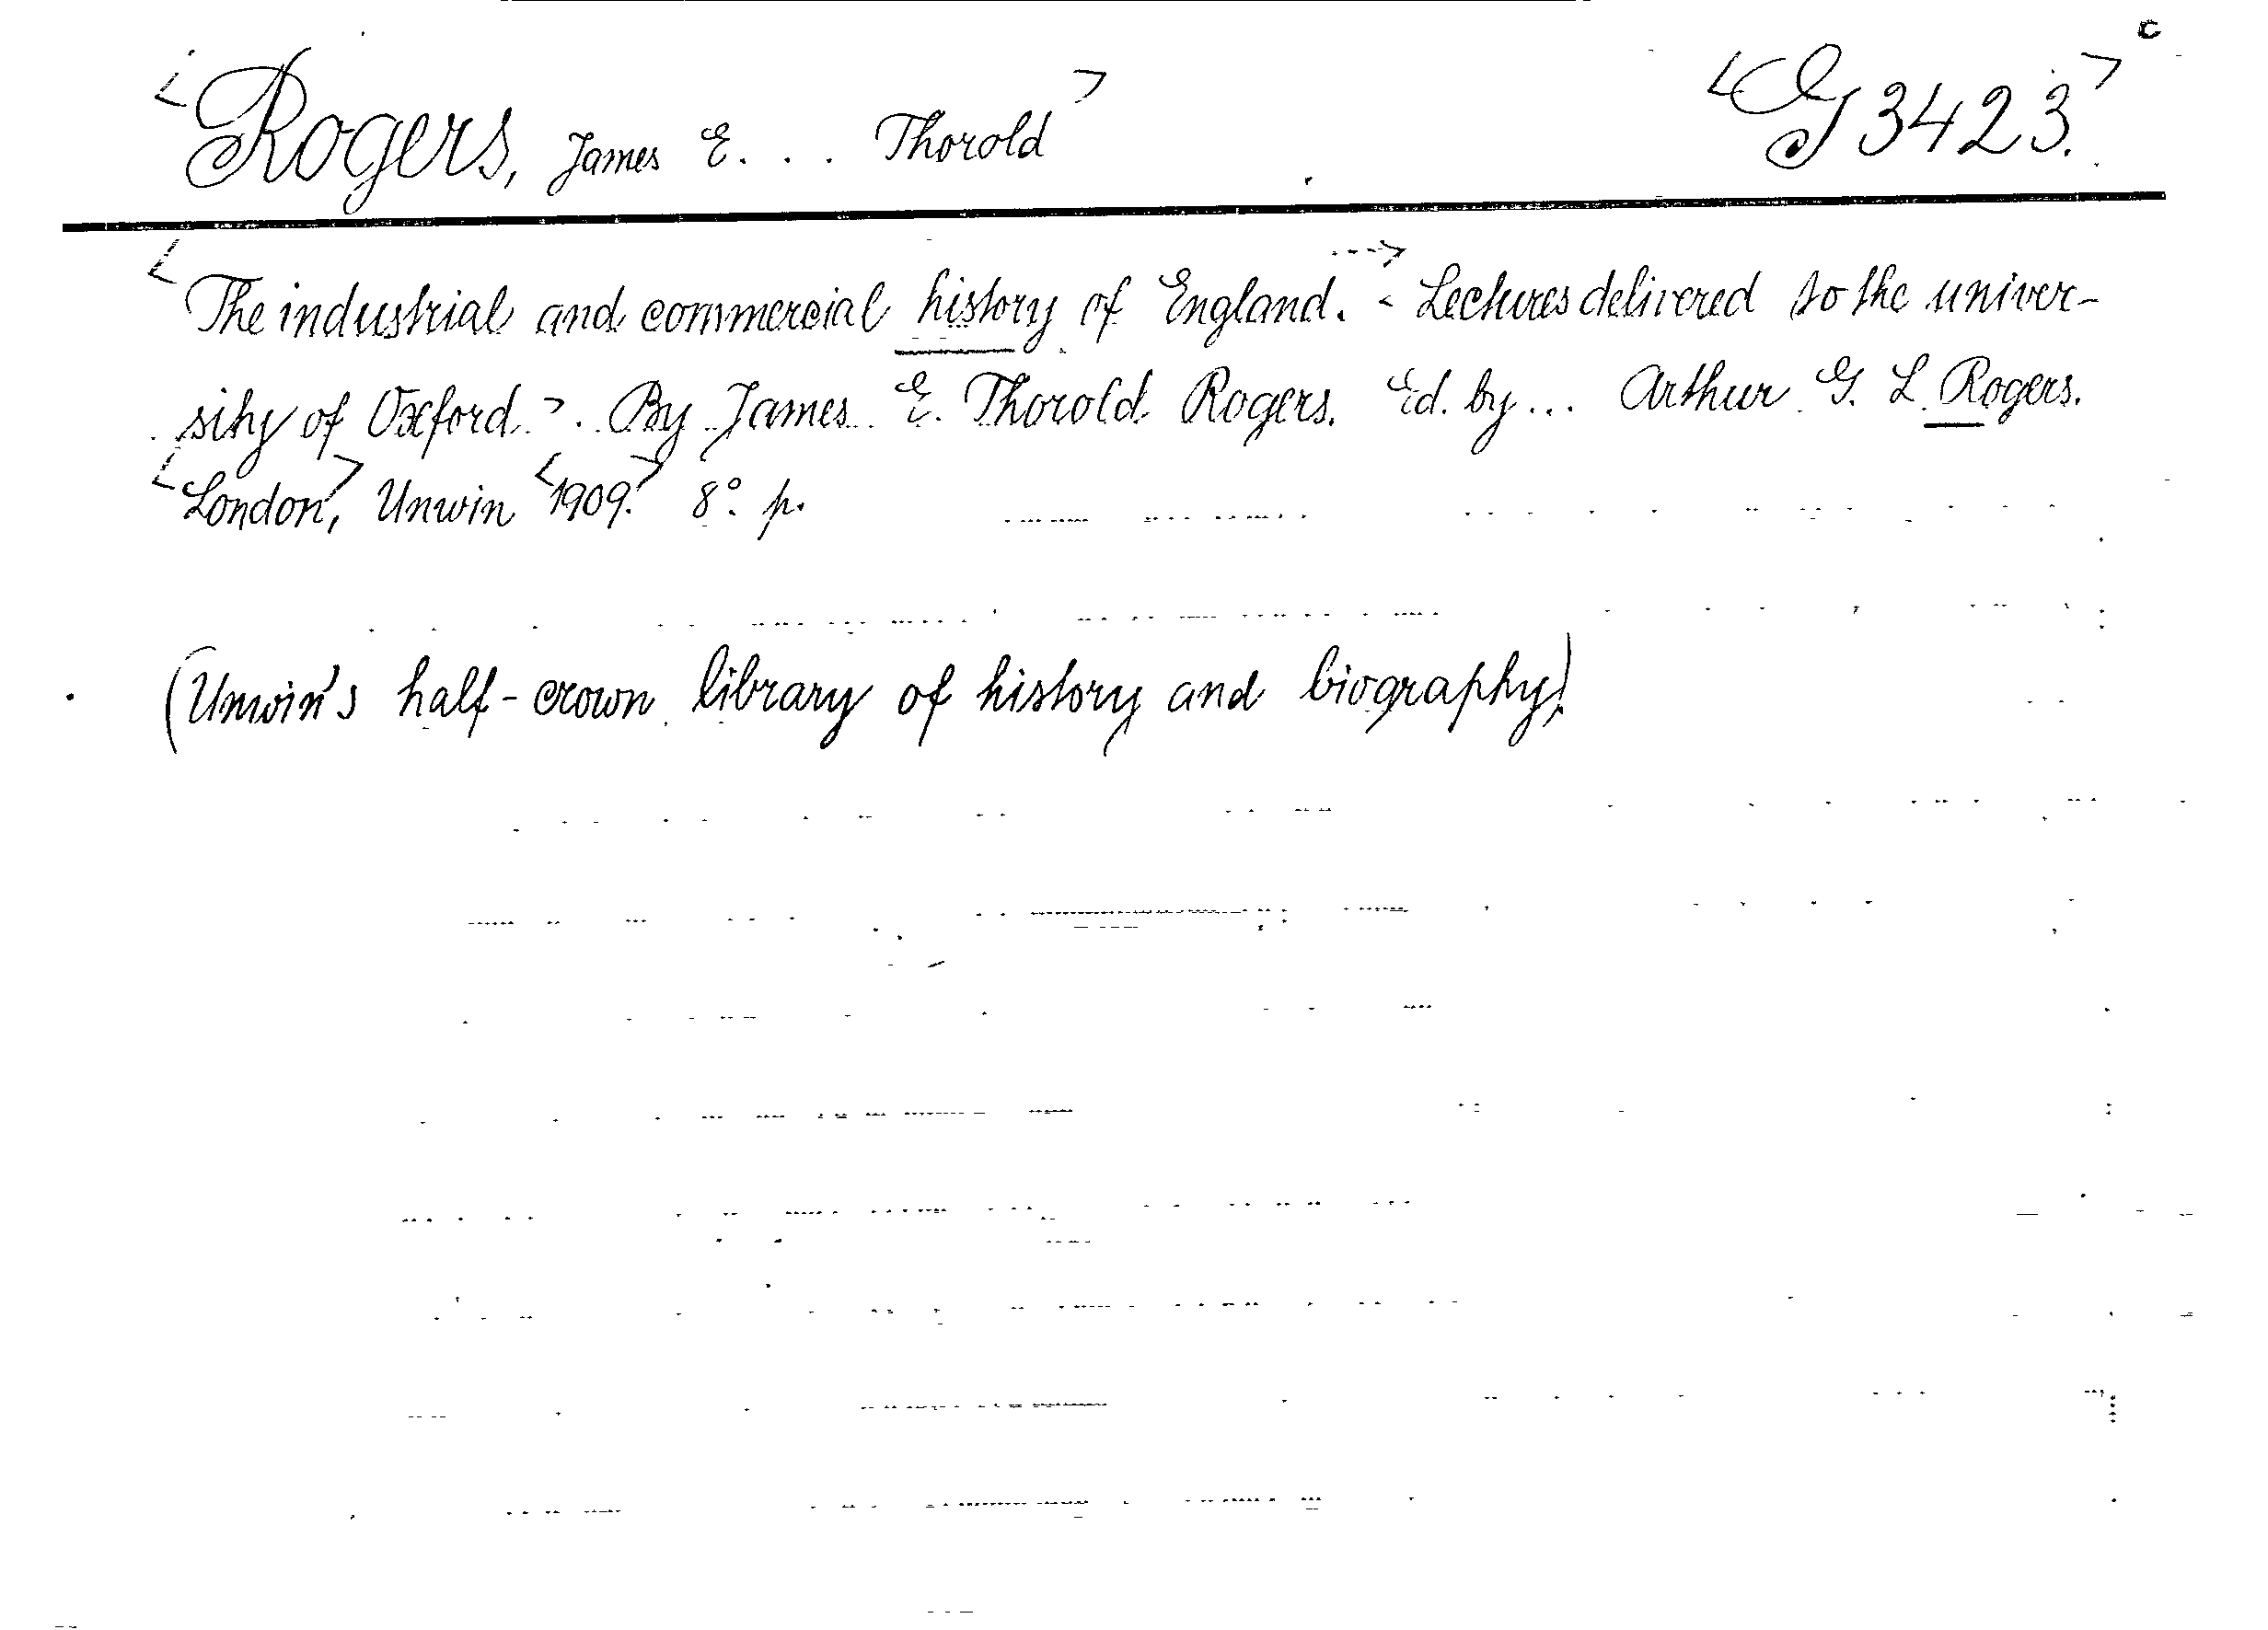 c
<Rogers, James E. . . Thorold> <G 3423.>
<The industrial and commercial history of England. ...> <Lectures delivered to the univer-
sity of Oxford.> By James E. Thorold Rogers. Ed. by ... Arthur G. L. Rogers.
<London>, Unwin <1909.> 8°. p.
(Unwin's half-crown library of history and biography.)